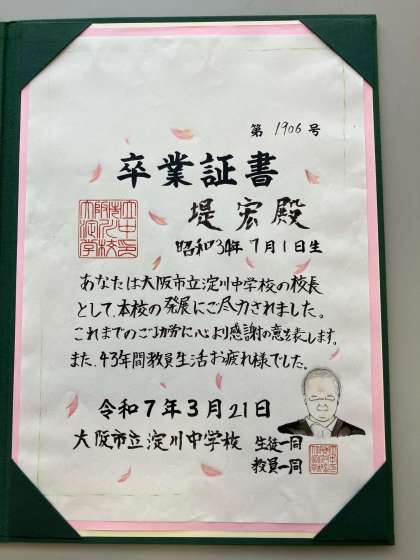 第 1906 号
卒業証書
堤 宏 殿
昭和34年7月1日生
あなたは大阪市立淀川中学校の校長
として、本校の発展にご尽力されました。
これまでのご功労に心より感謝の意を表します。
また、43年間教員生活お疲れ様でした。
令和7年3月21日
大阪市立淀川中学校
生徒一同
教員一同